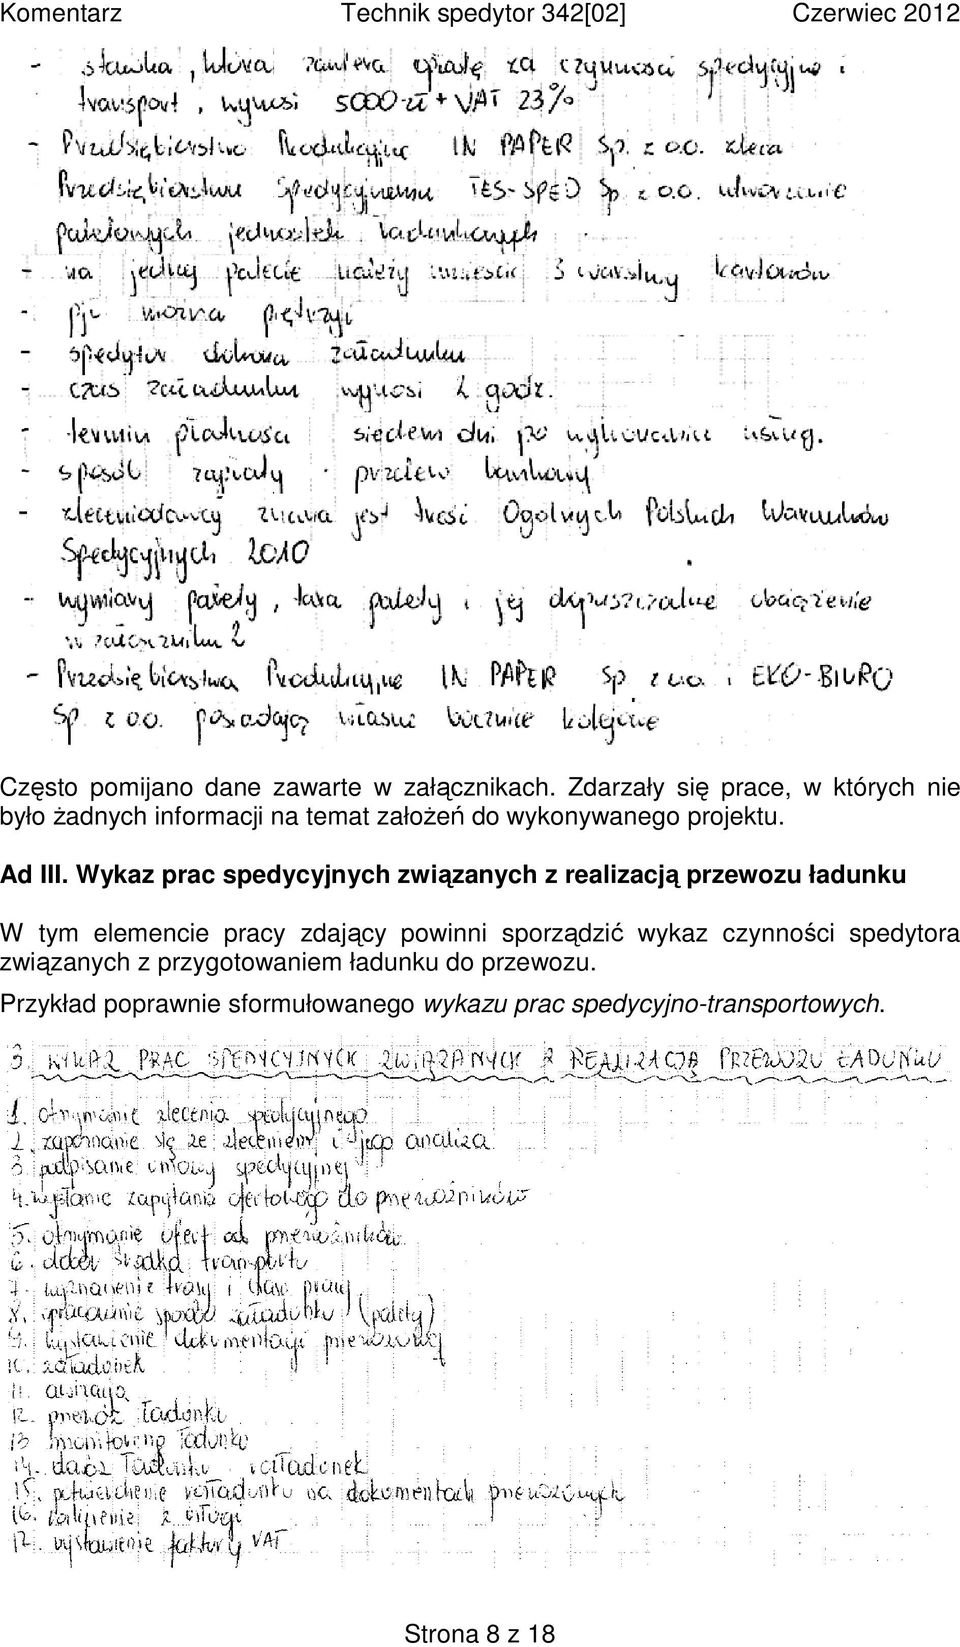 Komentarz Technik spedytor 342[02] Czerwiec 2012
- stawka, która zawiera opłatę za czynności spedycyjne i
transport, wynosi 5000 zł + VAT 23%
- Przedsiębiorstwo Produkcyjne IN PAPER Sp. z o.o. zleca
Przedsiębiorstwu Spedycyjnemu TES-SPED Sp. z o.o. utworzenie
paletowych jednostek ładunkowych
- na jednej palecie należy umieścić 3 warstwy kartonów
- pjł można piętrzyć
- spedytor dokona załadunku
- czas załadunku wynosi 2 godz.
- termin płatności siedem dni po wykonaniu usług.
- sposób zapłaty przelew bankowy
- zleceniodawcy znana jest treść Ogólnych Polskich Warunków
Spedycyjnych 2010
- wymiary palety, tara palety i jej dopuszczalne obciążenie
w załączniku 2
- Przedsiębiorstwa Produkcyjne IN PAPER Sp z o.o. i EKO-BIURO
Sp. z o.o. posiadają własne bocznice kolejowe
Często pomijano dane zawarte w załącznikach. Zdarzały się prace, w których nie
było żadnych informacji na temat założeń do wykonywanego projektu.
Ad III. Wykaz prac spedycyjnych związanych z realizacją przewozu ładunku
W tym elemencie pracy zdający powinni sporządzić wykaz czynności spedytora
związanych z przygotowaniem ładunku do przewozu.
Przykład poprawnie sformułowanego wykazu prac spedycyjno-transportowych.
3. WYKAZ PRAC SPEDYCYJNYCH ZWIĄZANYCH Z REALIZACJĄ PRZEWOZU ŁADUNKU
1. otrzymanie zlecenia spedycyjnego
2. zapoznanie się ze zleceniem i jego analiza
3. podpisanie umowy spedycyjnej
4. wysłanie zapytania ofertowego do przewoźników
5. otrzymanie ofert od przewoźników
6. dobór środka transportu
7. wyznaczenie trasy i czasu pracy
8. opracowanie sposobu załadunku (palety)
9. wystawienie dokumentacji przewozowej
10. załadunek
11. awizacja
12. przewóz ładunku
13. monitoring ładunku
14. dowóz ładunku i rozładunek
15. potwierdzenie rozładunku na dokumentach przewozowych
16. rozliczenie z usługi
17. wystawienie faktury VAT
Strona 8 z 18